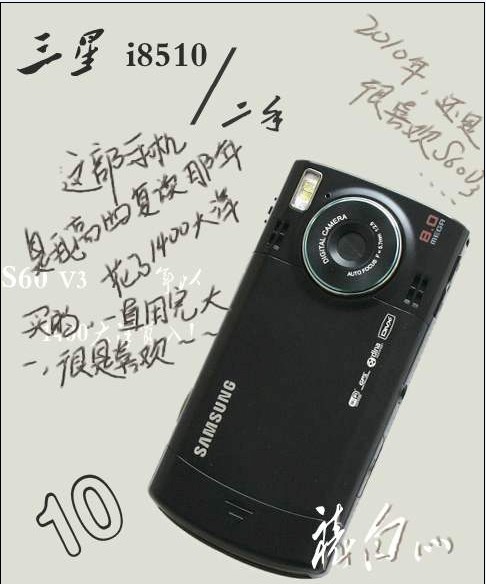 三星 i8510
/二手
2010年，还是
很喜欢S60V3
....
这部手机
是我高四复读那年
花了1400大洋
S60 V3
买的，一直用完大
一，很是喜欢~~
DIGITAL CAMERA
AUTO FOCUS F=5.7mm
8.0
MEGA
DivX
dlna
GPS
SAMSUNG
10